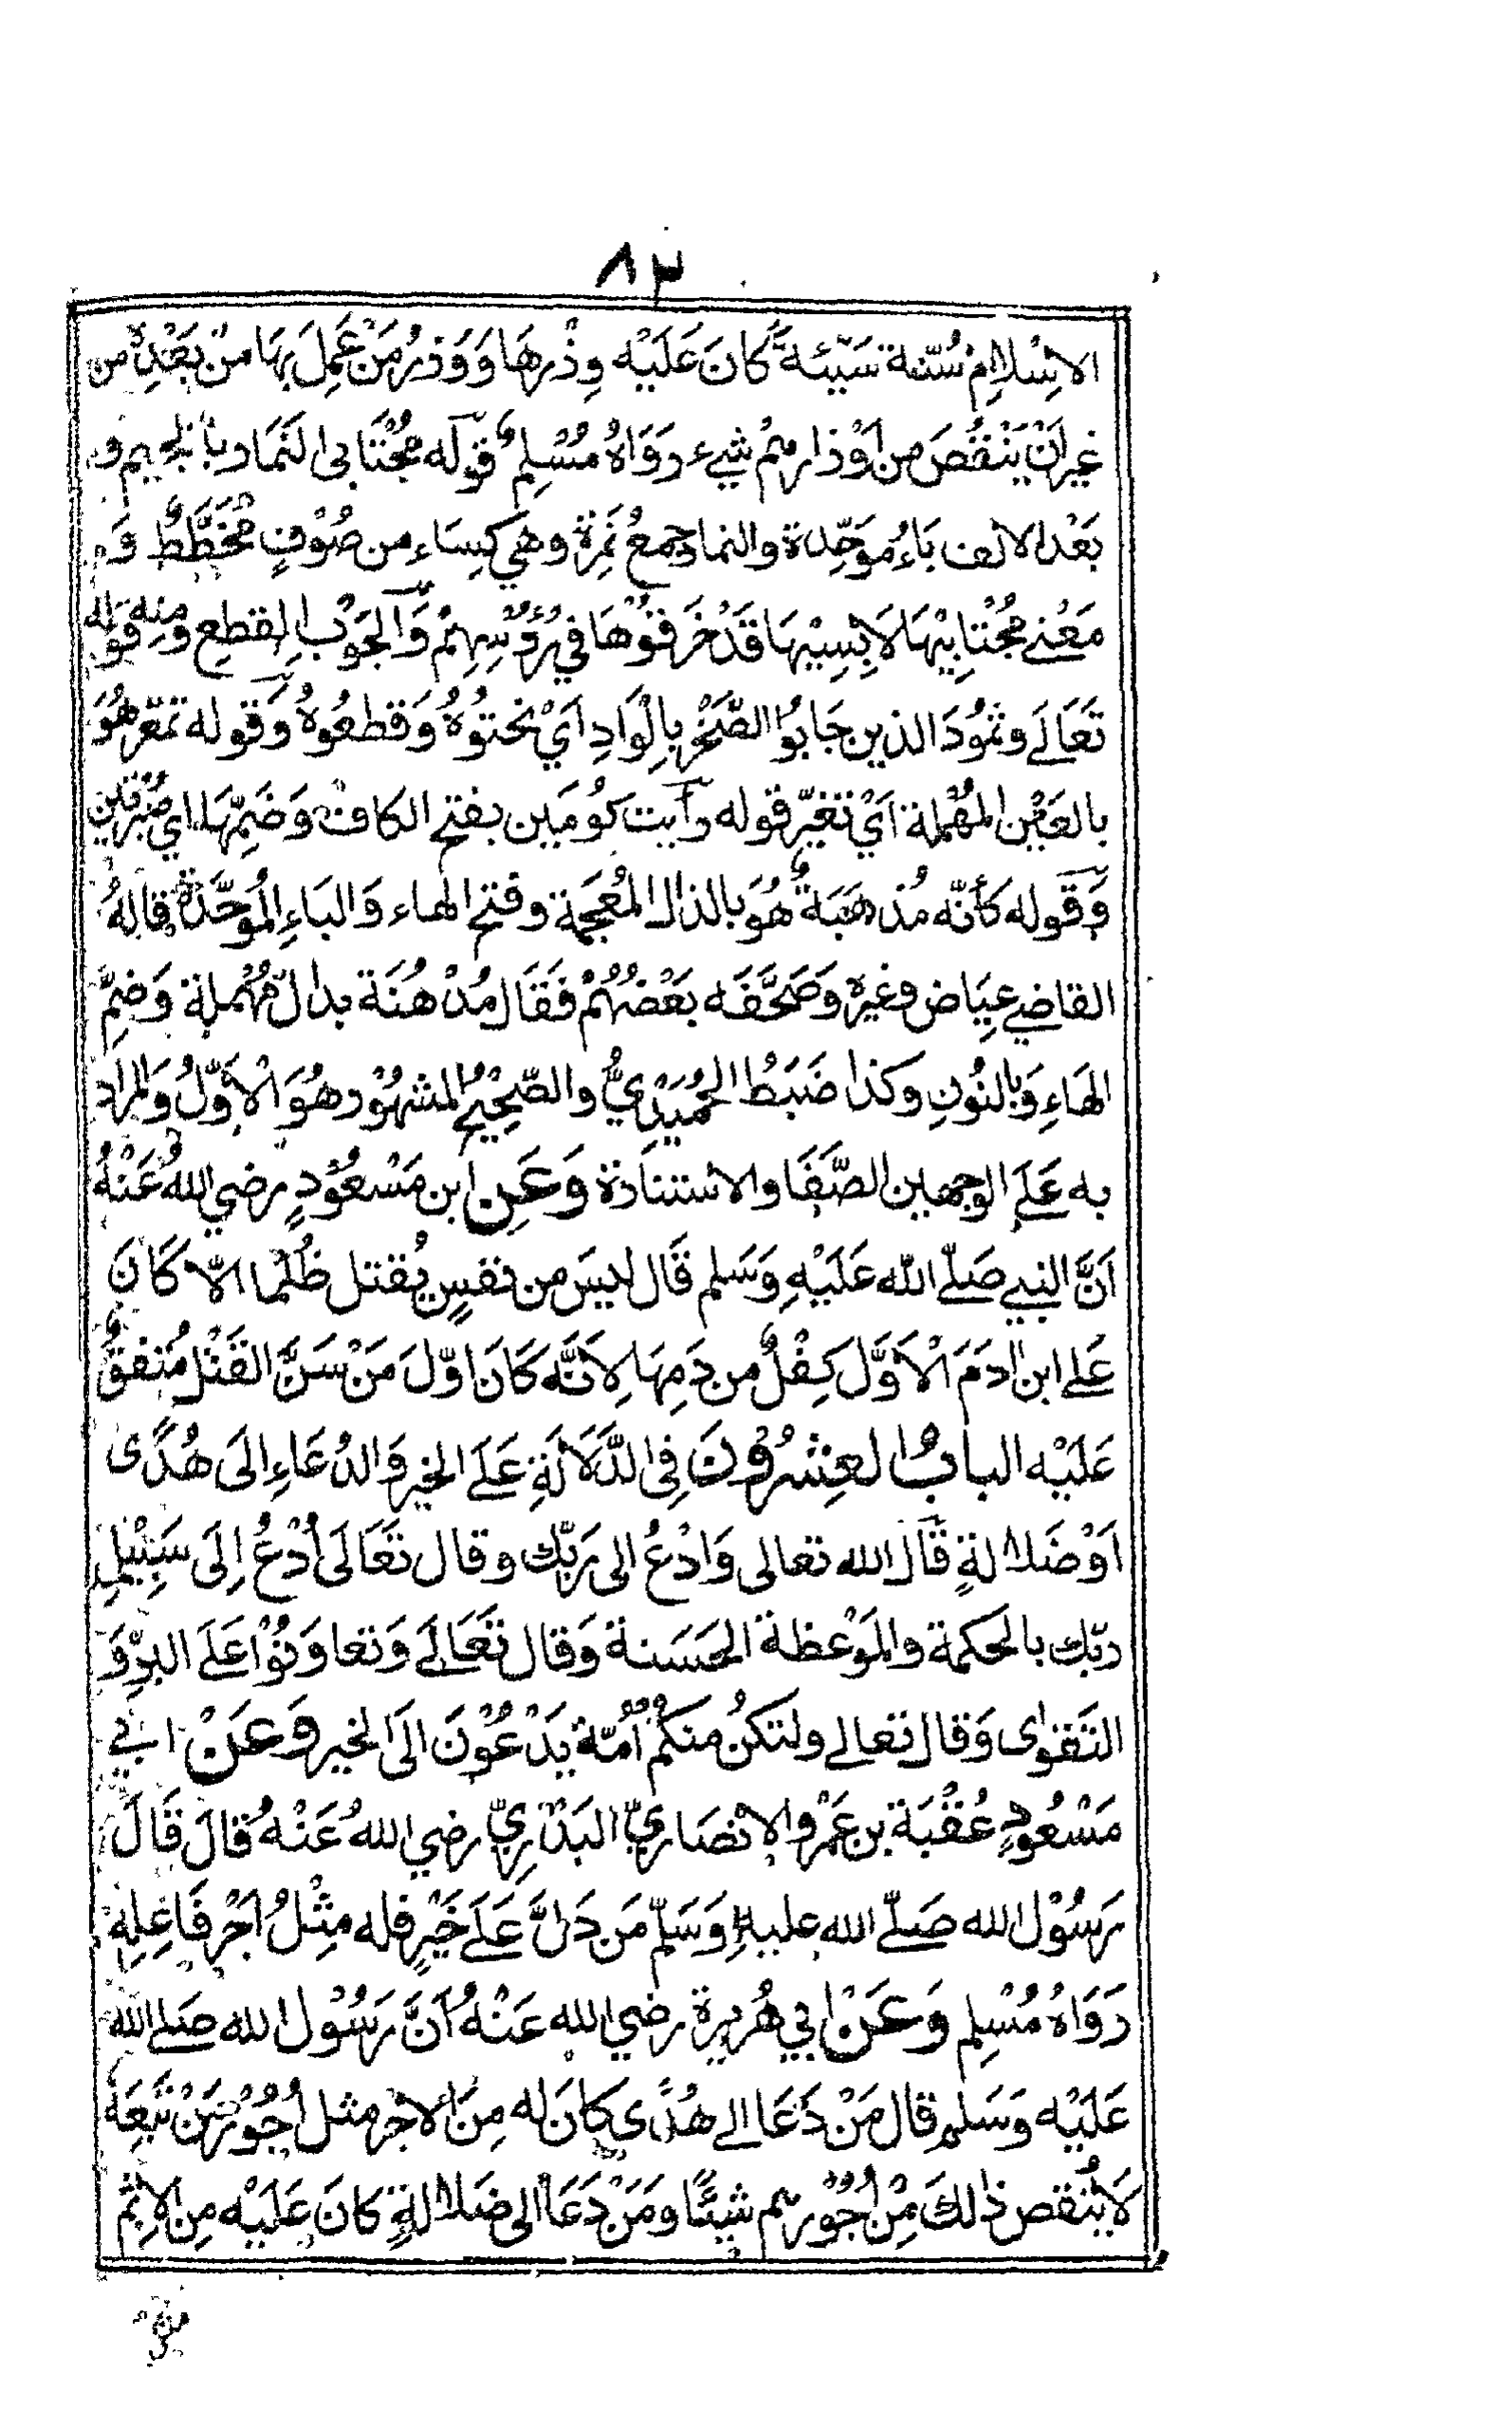 ٨٣
الاِسْلامِ سُنّة سَيّئةً كَانَ عَلَيْه وِذْرهَا وَوَذرُ مَنْ عَمِلَ بِهَا منْ بَعْدِهٖ من
غيرِ اَنْ يَنْقُصَ من اَوْذارهم شيء رَوَاهُ مُسْلِمٌ قوله مُجْتَابى النَمَار بالجيم و
بَعْد الالف بَاءُ مُوَحِّدة والنمار جمعُ نَمِرَة وهي كِسَاء من صُوْفٍ مُخَطَّطٌ وَ
مَعْنٰے مُجْتَابِيْهَا لَابِسِيْهَا قَدْ خَرَقوْهَا في رُؤُسِهِمْ وَالجَوْبُ القطع ومنه قوله
تَعَالَے وثَمُوْدَ الذين جَابُوا الصَّخْرَ بِالْوَادِ اَيْ نَحتوْهُ وَقطعُوهُ وَقوله تمعّر هُوَ
بالعَيْن المُهْمَلة اَيْ تَغَيّر قوله رَأيت كوْمَين بفتح الكاف وَضَمّهَا اي صُبْرَتين
وَقوله كَأَنّه مُذهَبَةٌ هُوَ بالذال المُعجَمَة وفتح الهاء وَالبَاءِ المُوَحّدَة قالهُ
القاضي عِيَاض وغيره وَصَحَّفَه بَعْضُهُمْ فَقَال مُدْهُنَة بدالٍ مُهْملة وَضَمِّ
الهَاءِ وَبالنُونِ وكذا ضَبَطُ الحُمَيْدِيُّ والصَّحِيْحُ المشهُوْر هُوَ الْاَوّلُ وَالمراد
به عَلَے الوجهين الصَّفَا والاستنارَة وَعَنِ ابن مَسْعُوْدٍ رضي اللهُ عَنْهُ
اَنَّ النبي صَلّے الله عَلَيْهِ وَسَلم قَال ليسَ من نفسٍ يُقتل ظُلْمًا الاّ كَانَ
عَلے ابن اٰدَمَ الْاَوَّل كِفْلٌ من دَمِهَا لِاَنَّه كَانَ اوّل مَنْ سَنَّ القَتْل مُتفقٌ
عَلَيْه البابُ العِشْرُوْنَ فِى الدَّلَالَةِ عَلَے الخير وَالدُعَاءِ اِلَى هُدًى
اَوْ ضَلالةٍ قَالَ الله تعالى وَادْعُ الى رَبّك وقال تَعَالَى اُدْعُ اِلَى سَبِيْلِ
ربّك بالحكمة والمَوْعظة الحَسَنة وَقال تَعَالَے وَتعاوَنُوْا عَلَے البِرّ وَ
التَقوٰى وَقال تعالے ولتكنْ منكم اُمّةٌ يَدْعُوْنَ الَى الخير وَعَنْ ابي
مَسْعُودٍ عُقْبَة بن عَمْرو الانْصَاريِّ البَدْرِيِّ رضي اللهُ عَنْهُ قالَ قَالَ
رَسُوْل الله صَلّے الله عليهِ وَسَلّم مَن دَلَّ عَلَے خَيْرٍ فله مِثْلُ اَجْرِ فَاعِلِهٖ
رَوَاهُ مُسْلِم وَعَنْ ابي هُريرة رضي الله عَنْهُ اَنَّ رَسُوْل الله صَلے الله
عَلَيْه وَسَلم قال مَنْ دَعَا الے هُدًى كانَ له مِنَ الاجر مثل اُجُوْرِ مَنْ تَبِعَهٗ
لَا يُنقص ذٰلكَ مِنْ اُجُوْرهم شيئًا ومَنْ دَعَا الى ضَلالةٍ كانَ عَلَيْه مِنَ الاِثمِ